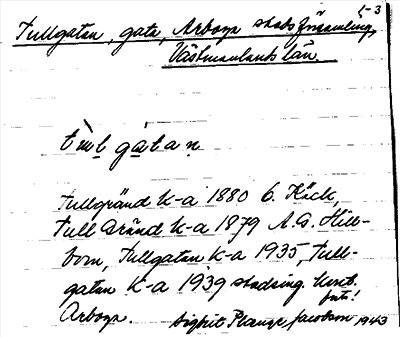 1-3
Tullgatan, gata, Arboga stads församling,
Västmanlands län.
tʉlgatan
Tullgränd k-a 1880 G. Käck,
Tull Gränd k-a 1879 A.G. Hill-
bom, Tullgatan k-a 1935, Tull-
gatan k-a 1939 stadsing.
Arboga.
Sigbrit Plange Jacobson 1943